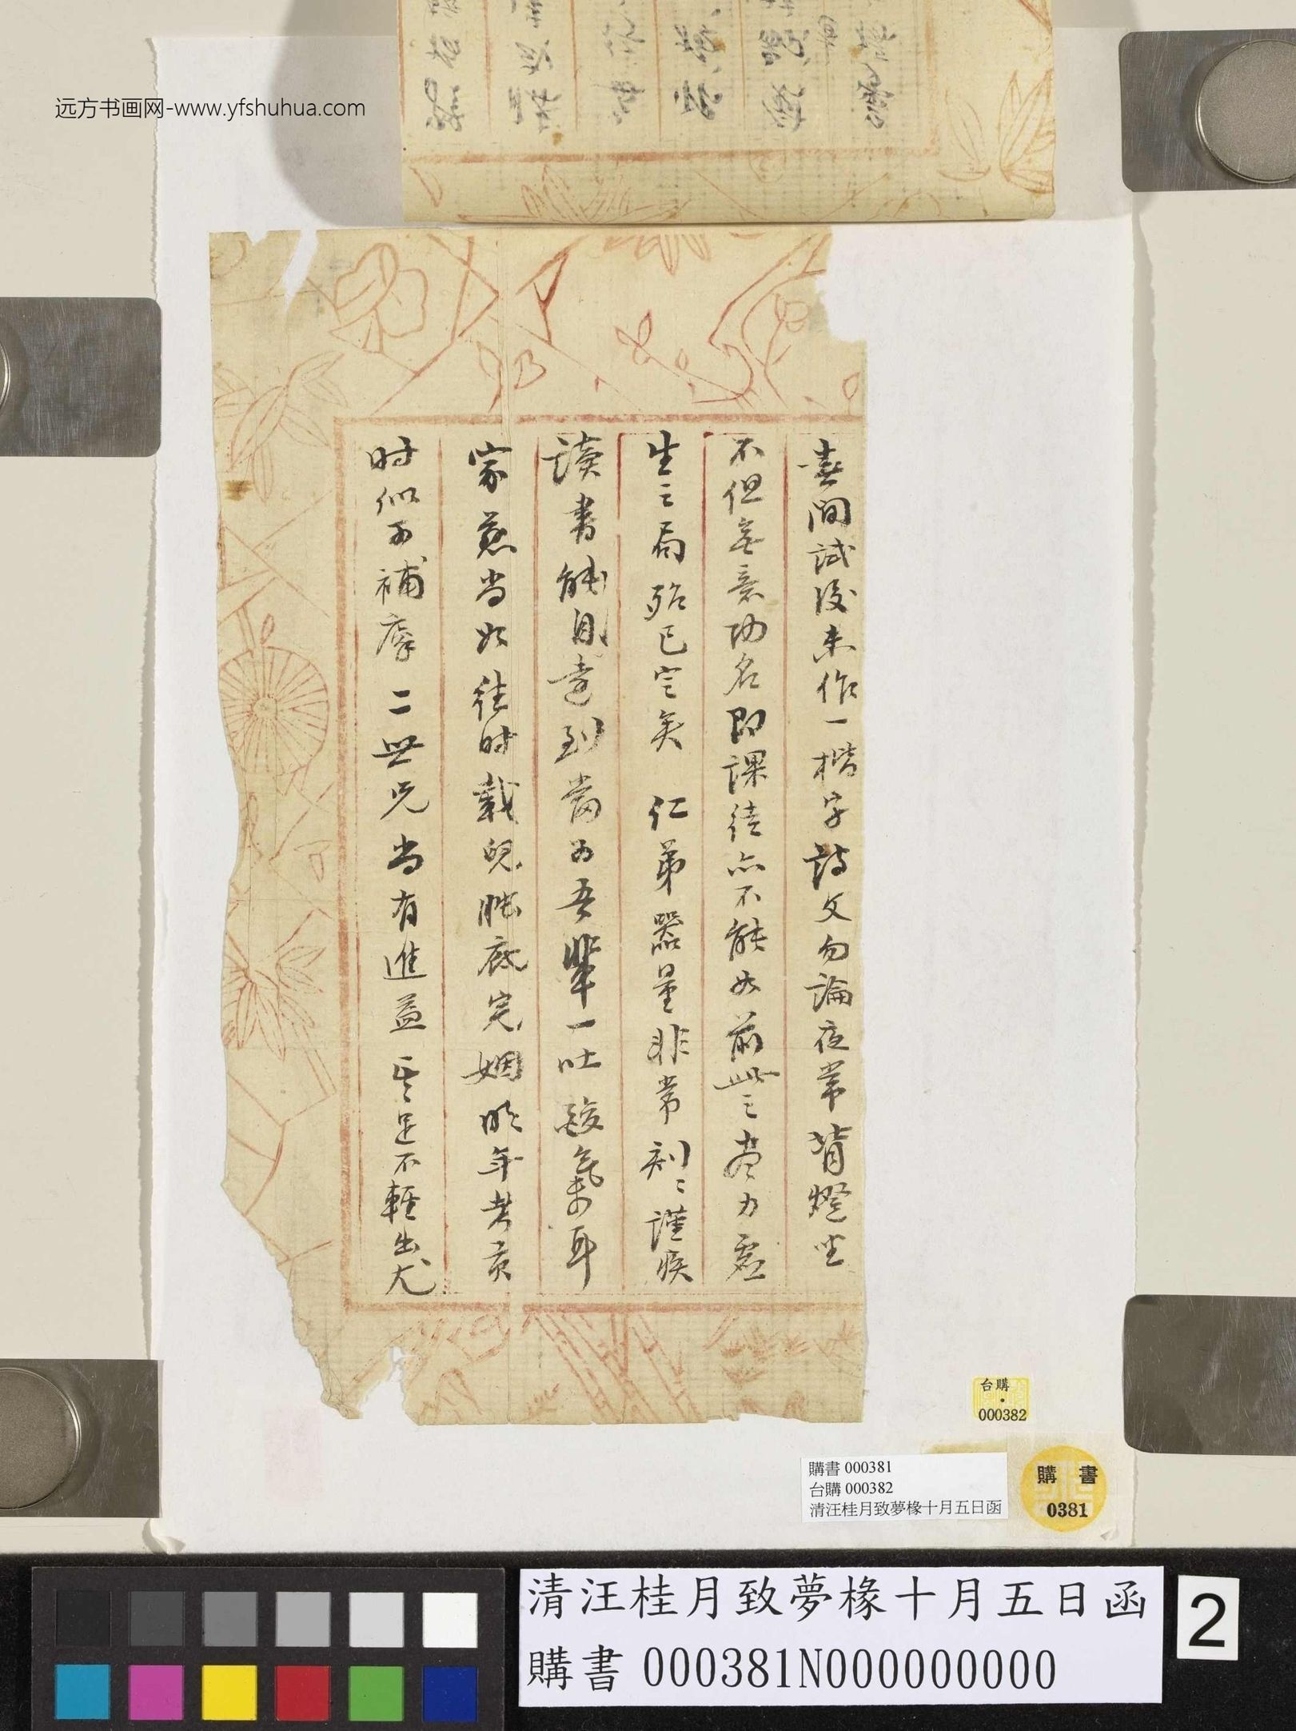 远方书画网-www.yfshuhua.com
春間試後未作一楷字詩文勿論夜常背燈坐
不但無意功名即課徒亦不能如前此之盡力處
生之局殆已定矣 仁弟器量非常刻刻謹候
讀書能自意到當為吾輩一吐酸氣耳
家慈尚如往時載兒臘底完姻明年考貢
时似可補廩二世兄尚有進益 足不輕出尤
台購
000382
購書 000381
台購 000382
清汪桂月致夢椽十月五日函
購書
0381
清汪桂月致夢椽十月五日函
購書 000381N000000000
2